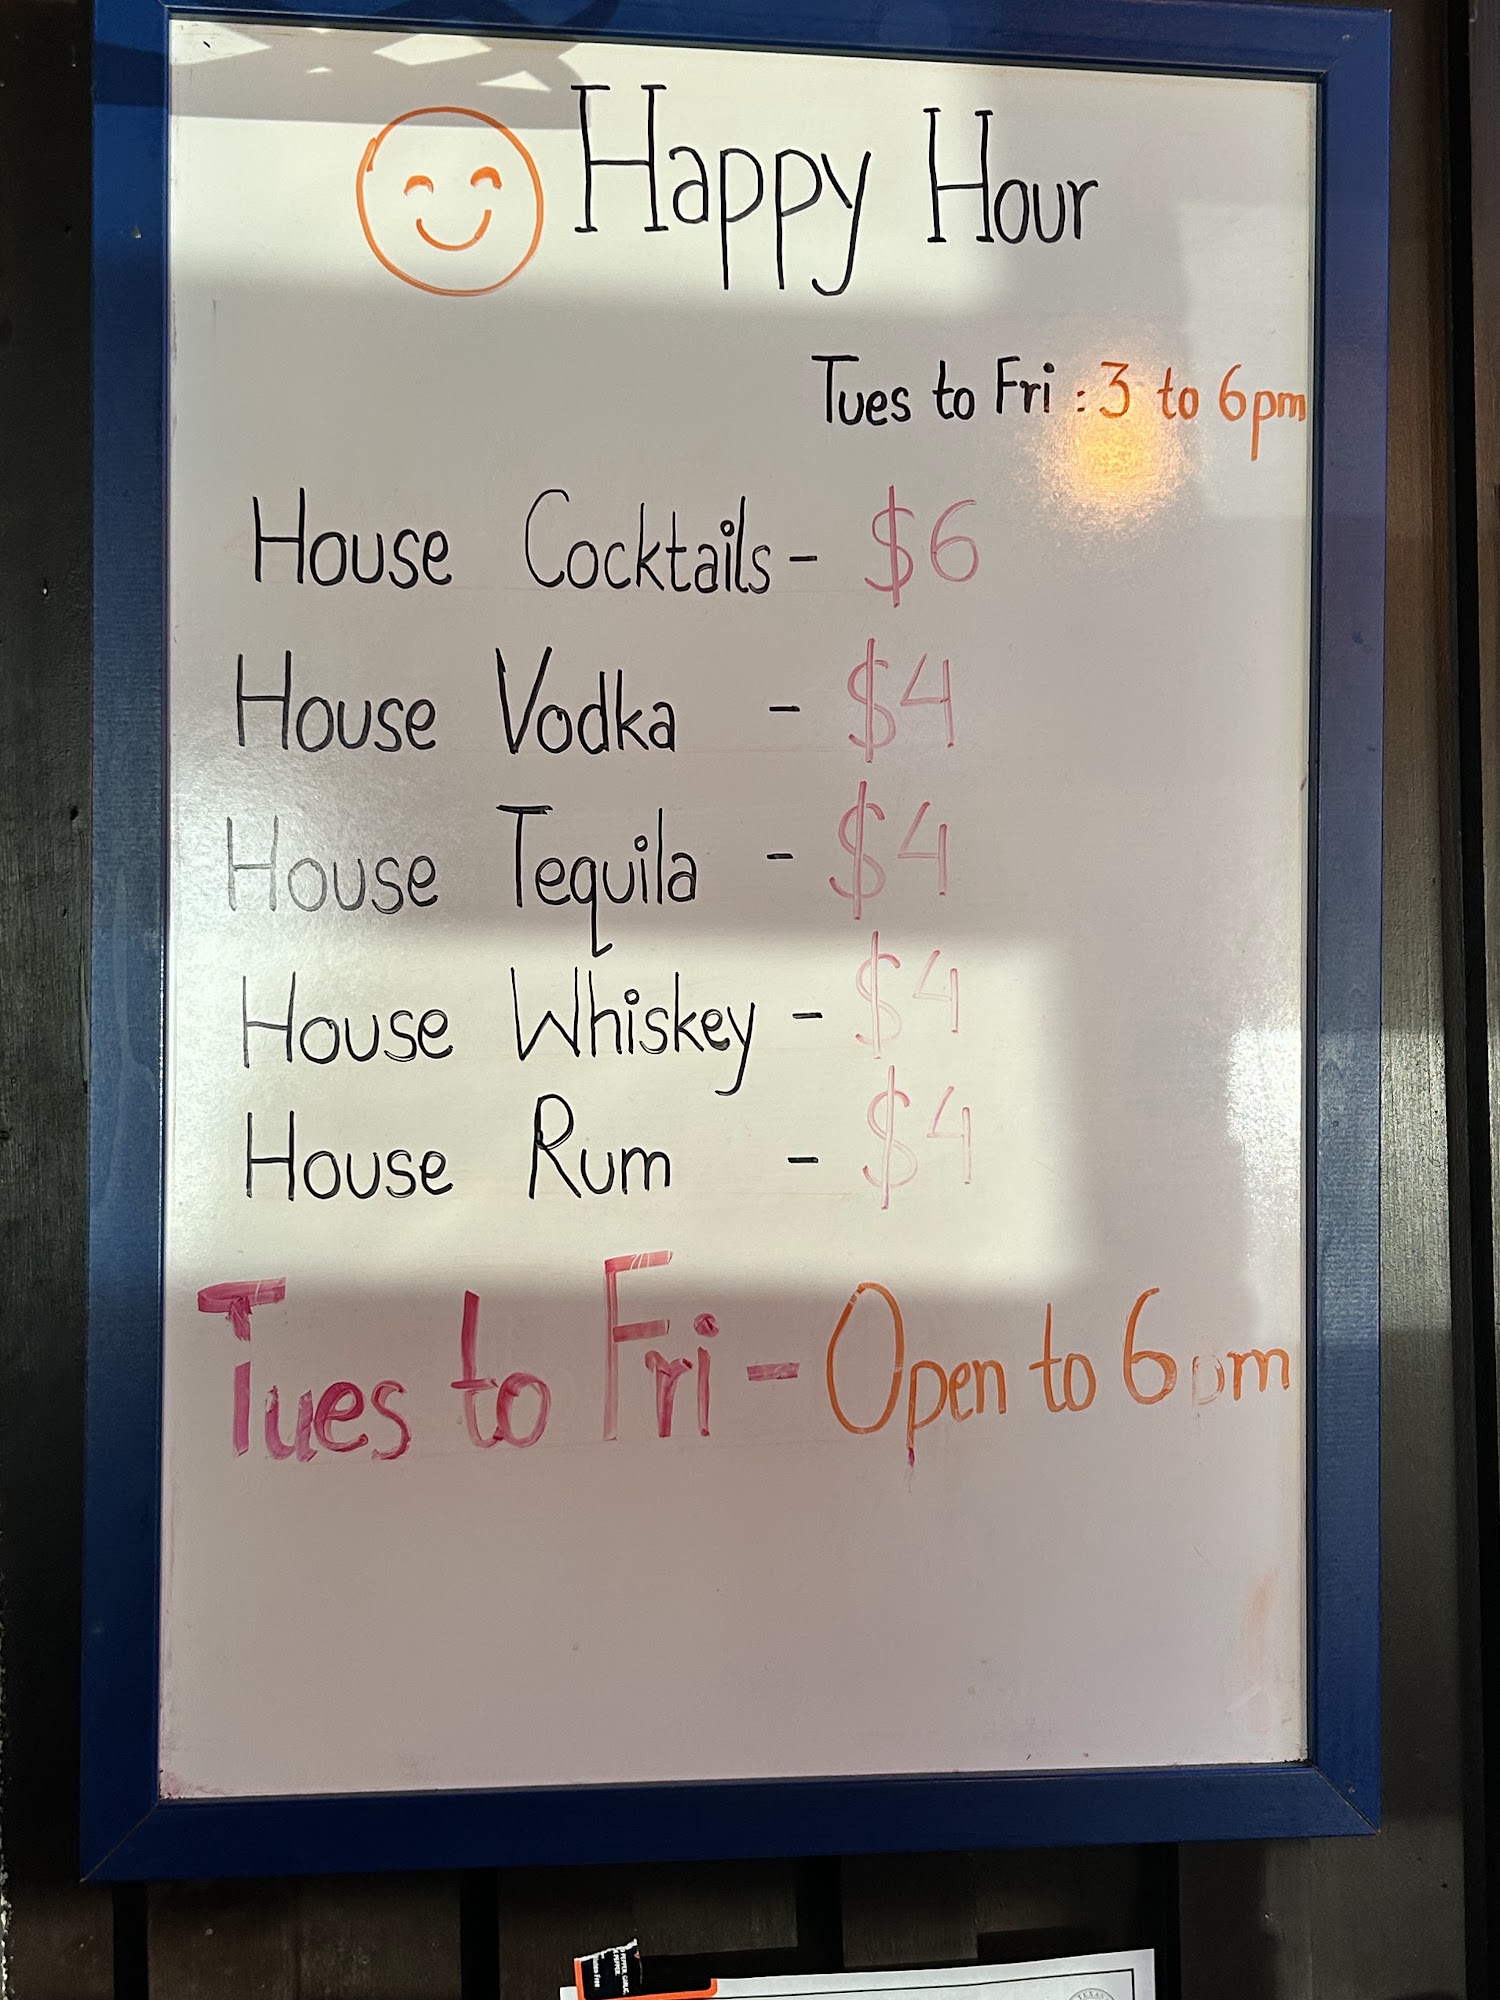 Happy Hour
Tues to Fri : 3 to 6pm
House Cocktails - $6
House Vodka - $4
House Tequila - $4
House Whiskey - $4
House Rum - $4
Tues to Fri - Open to 6pm
TEXAS